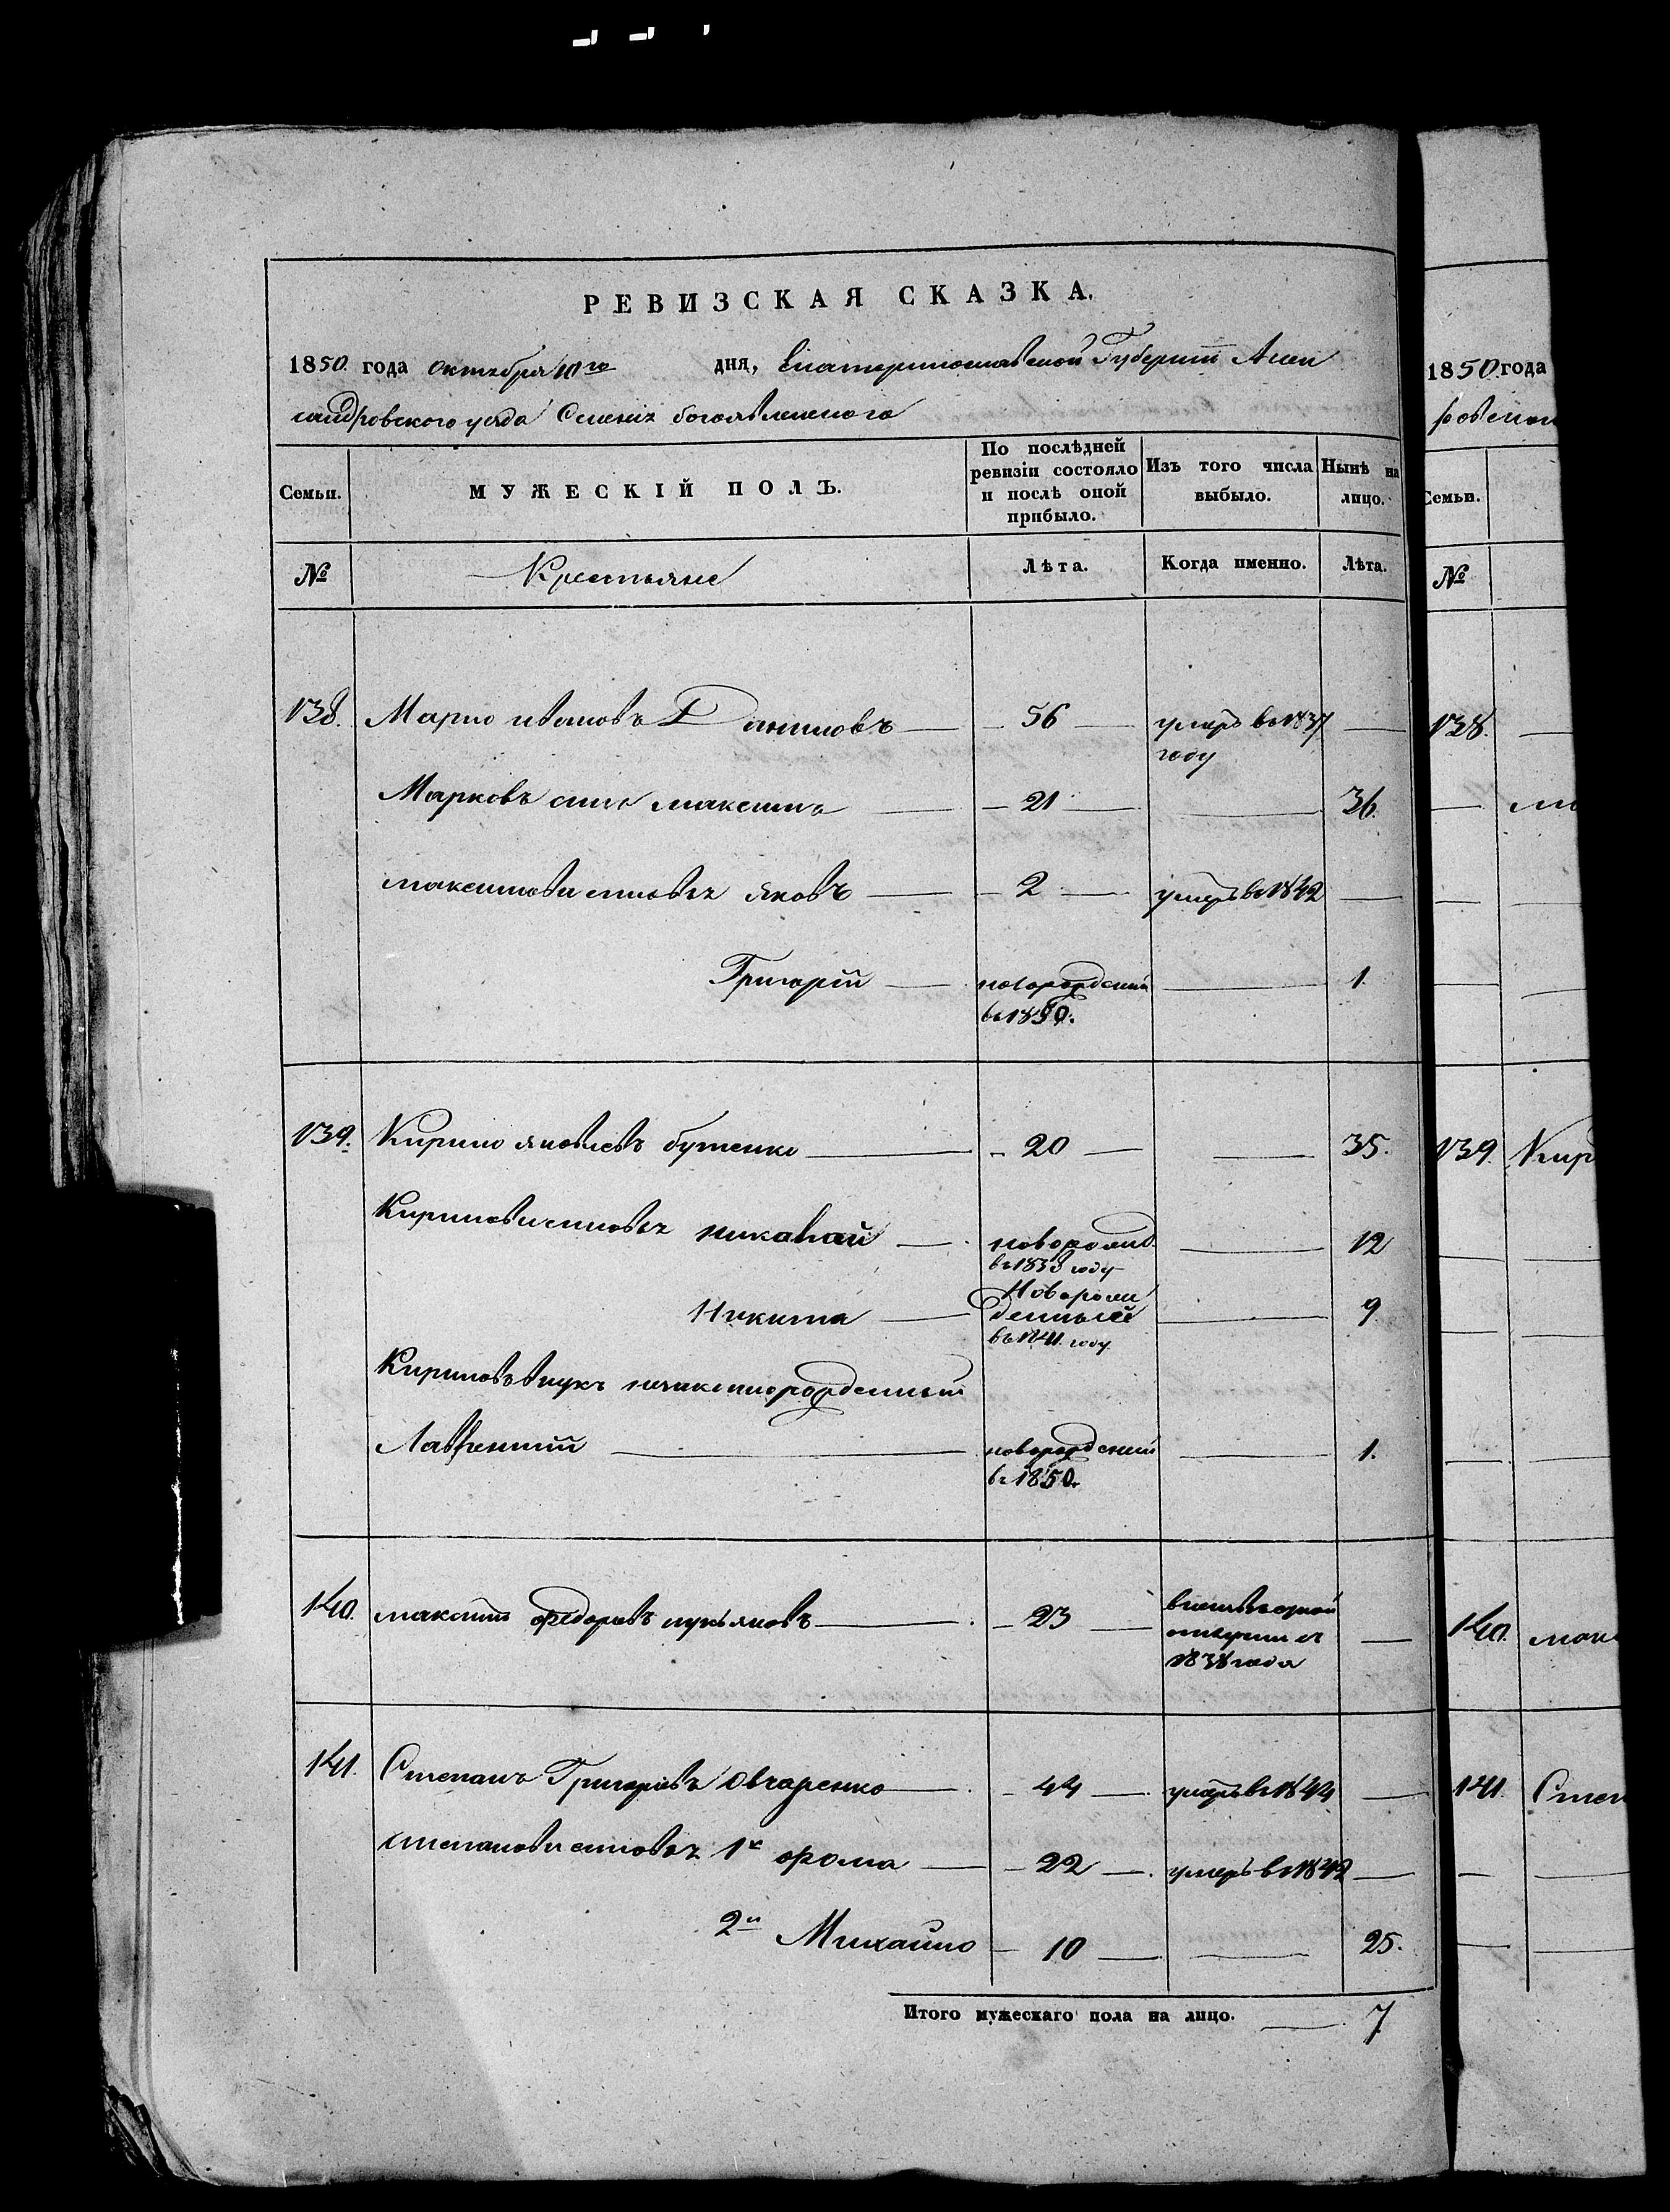 РЕВИЗСКАЯ СКАЗКА.
1850. года октября 10го дня, Екатеринославской Губернiи Алек
сандровского уезда Селенiя богоявленского
Семьи. МУЖЕСКІЙ ПОЛЪ. По послѣдней ревизіи состояло и послѣ оной прибыло. Изъ того числа выбыло. Нынѣ на лицо.
№ Крестьяне Лѣта. Когда именно. Лѣта.
138. Марко ивановъ Даниловъ 56 умеръ въ 1837
году
Марковъ сынъ максимъ 21 36.
максимови сыновья яковъ 2 умеръ въ 1842
Григорiй новорожденый 1
въ 1850.
139. Кирило яковлевъ бутенко 20 35.
Кирилови сыновья николай новорожд. 12
въ 1838 году
Никита Новорож 9
денный
въ 1841. году
Кириловъ внукъ незаконорожденный
Лаврентий новорожденый 1.
въ 1850.
140. максим федоровъ лукьяновъ 23
отлучки съ
1838 года
141. Степанъ Григоровъ Овчаренко 44 умеръ въ 1844
степанови сыновья 1й фома 22 умеръ въ 1842
2й Михайло 10 25.
Итого мужескаго пола на лицо. 7
1850 года
Семьи.
№
138.
139. Кир
140. мак
141. Степ